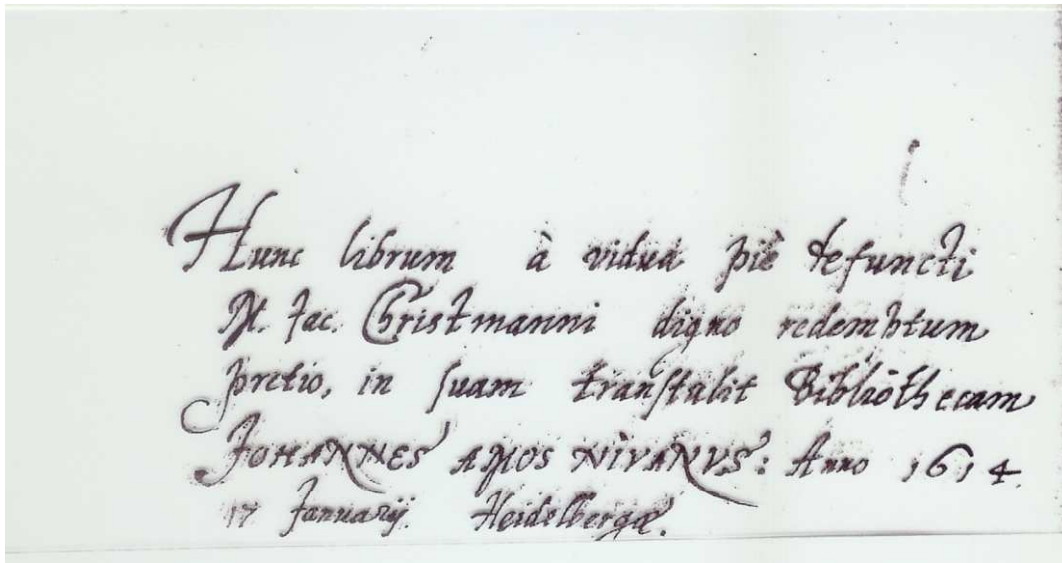 Hunc librum à viduâ piè defuncti
M. Jac. Christmanni digno redemptum
pretio, in suam transtulit Bibliothecam
JOHANNES AMOS NIVANUS: Anno 1614.
17 Januarij. Heidelbergæ.